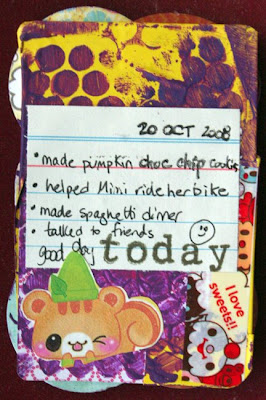 20 OCT 2008
• made pumpkin choc chip cookies
• helped Mini ride her bike
• made spaghetti dinner
• talked to friends
good day today
I love
sweets!!